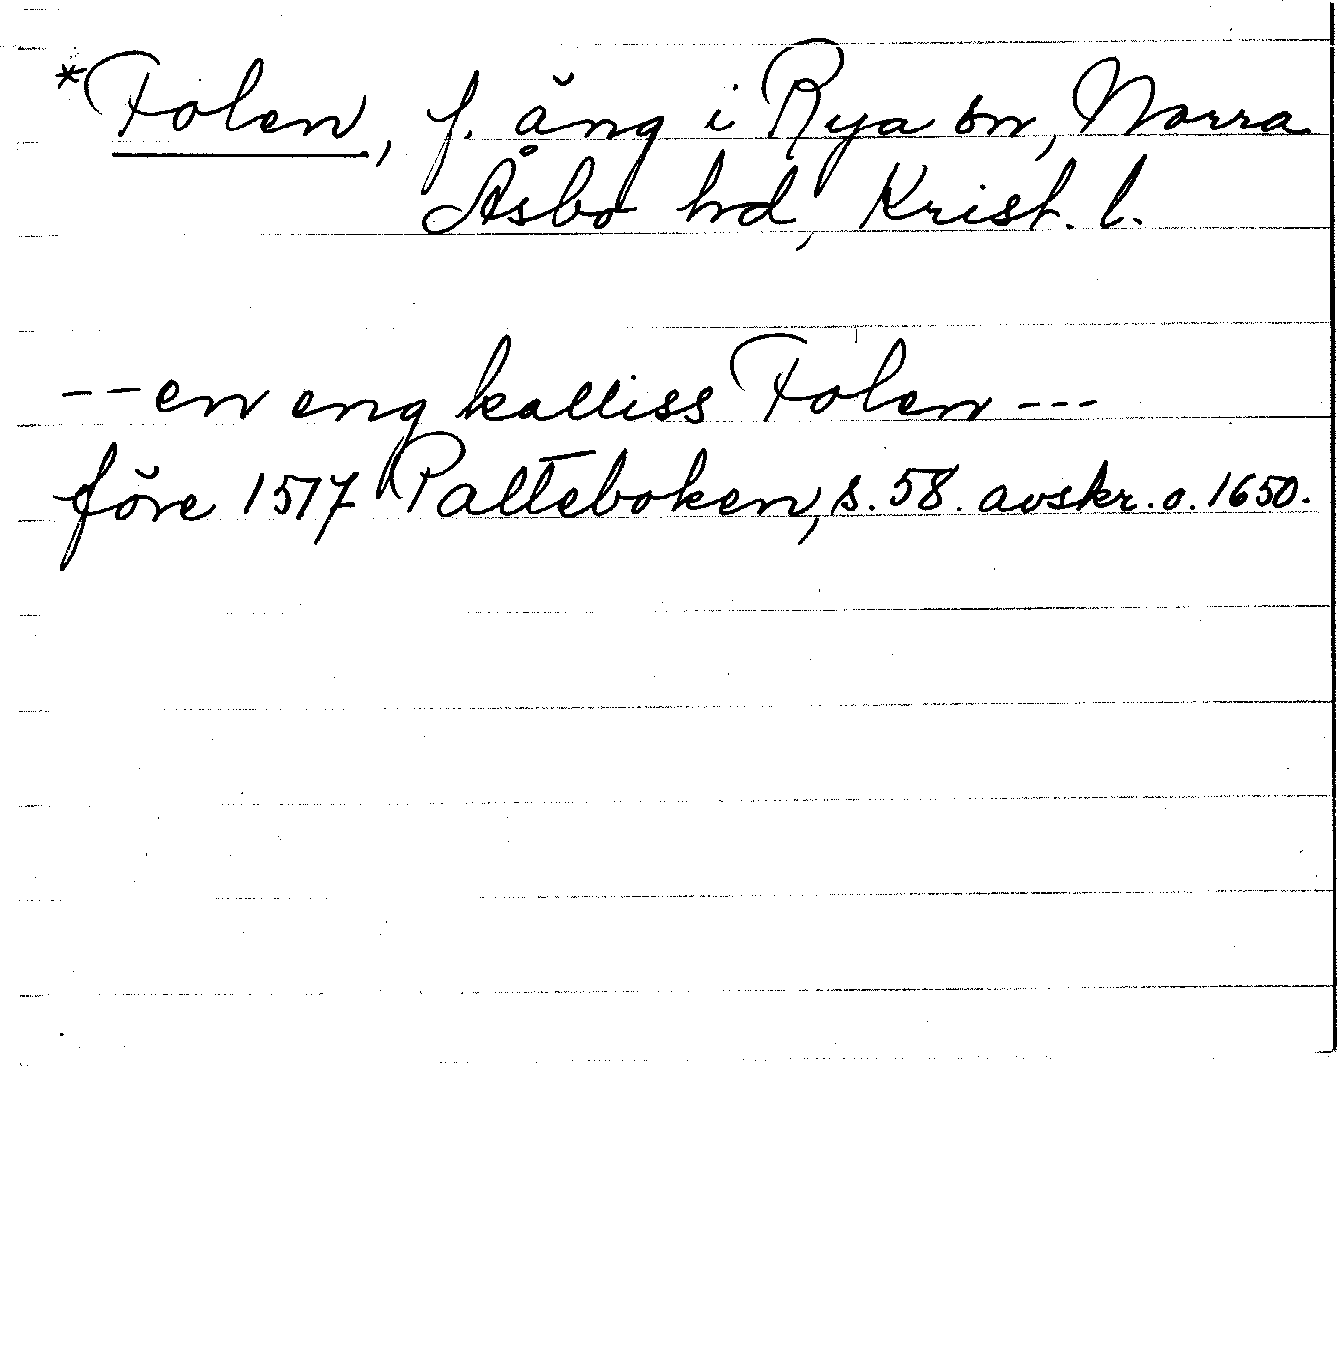 *Folen, f. äng i Rya sn, Norra
Åsbo hd, Krist. l.
--en eng kalliss Folen---
före 1517 Palteboken, s. 58. avskr. o. 1650.